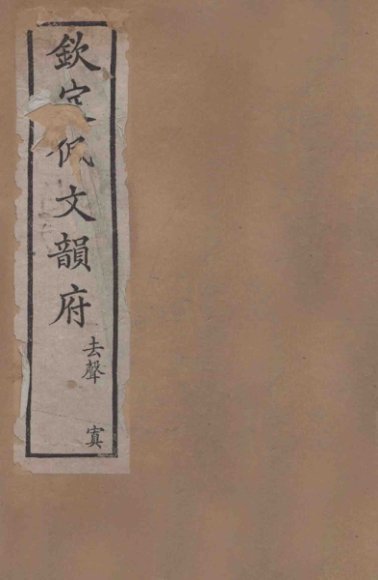 欽定佩文韻府
去聲
寘